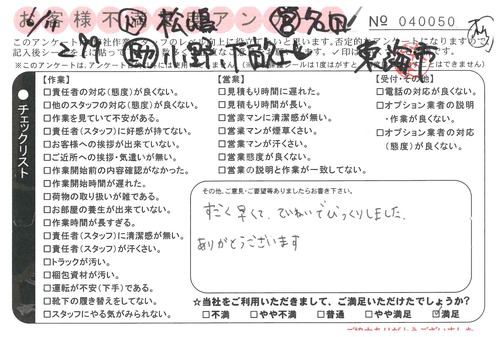 お客様不満 アン
№ 040050
6/11 松嶋 久田
東海市
※このアンケート
【作業】
□責任者の対応(態度)が良くない。
□他のスタッフの対応(態度)が良くない。
□作業を見ていて不安がある。
□責任者(スタッフ)に好感が持てない。
□お客様への挨拶が出来ていない。
□ご近所への挨拶・気遣いが無い。
□作業開始前の内容確認がなかった。
□作業開始時間が遅れた。
□荷物の取り扱いが雑である。
□お部屋の養生が出来ていない。
□作業時間が長すぎる。
□責任者(スタッフ)に清潔感が無い。
□責任者(スタッフ)が汗くさい。
□トラックが汚い。
□梱包資材が汚い。
□運転が不安(下手)である。
□靴下の履き替えをしてない。
□スタッフにやる気がみられない。
チェックリスト
【営業】
□見積もり時間に遅れた。
□見積もり時間が長い。
□営業マンに清潔感が無い。
□営業マンが煙草くさい。
□営業マンが汗くさい。
□営業態度が良くない。
□営業の説明と作業が一致してない。
【受付・その他】
□電話の対応が良くない。
□オプション業者の説明
・作業が良くない。
□オプション業者の対応
(態度)が良くない。
その他、ご意見・ご要望等ありましたらお書き下さい。
すごく早くて、ていねいでびっくりしました。
ありがとうございます
☆当社をご利用いただきまして、ご満足いただけたでしょうか?
□不満 □やや不満 □普通 □やや満足 ☑満足